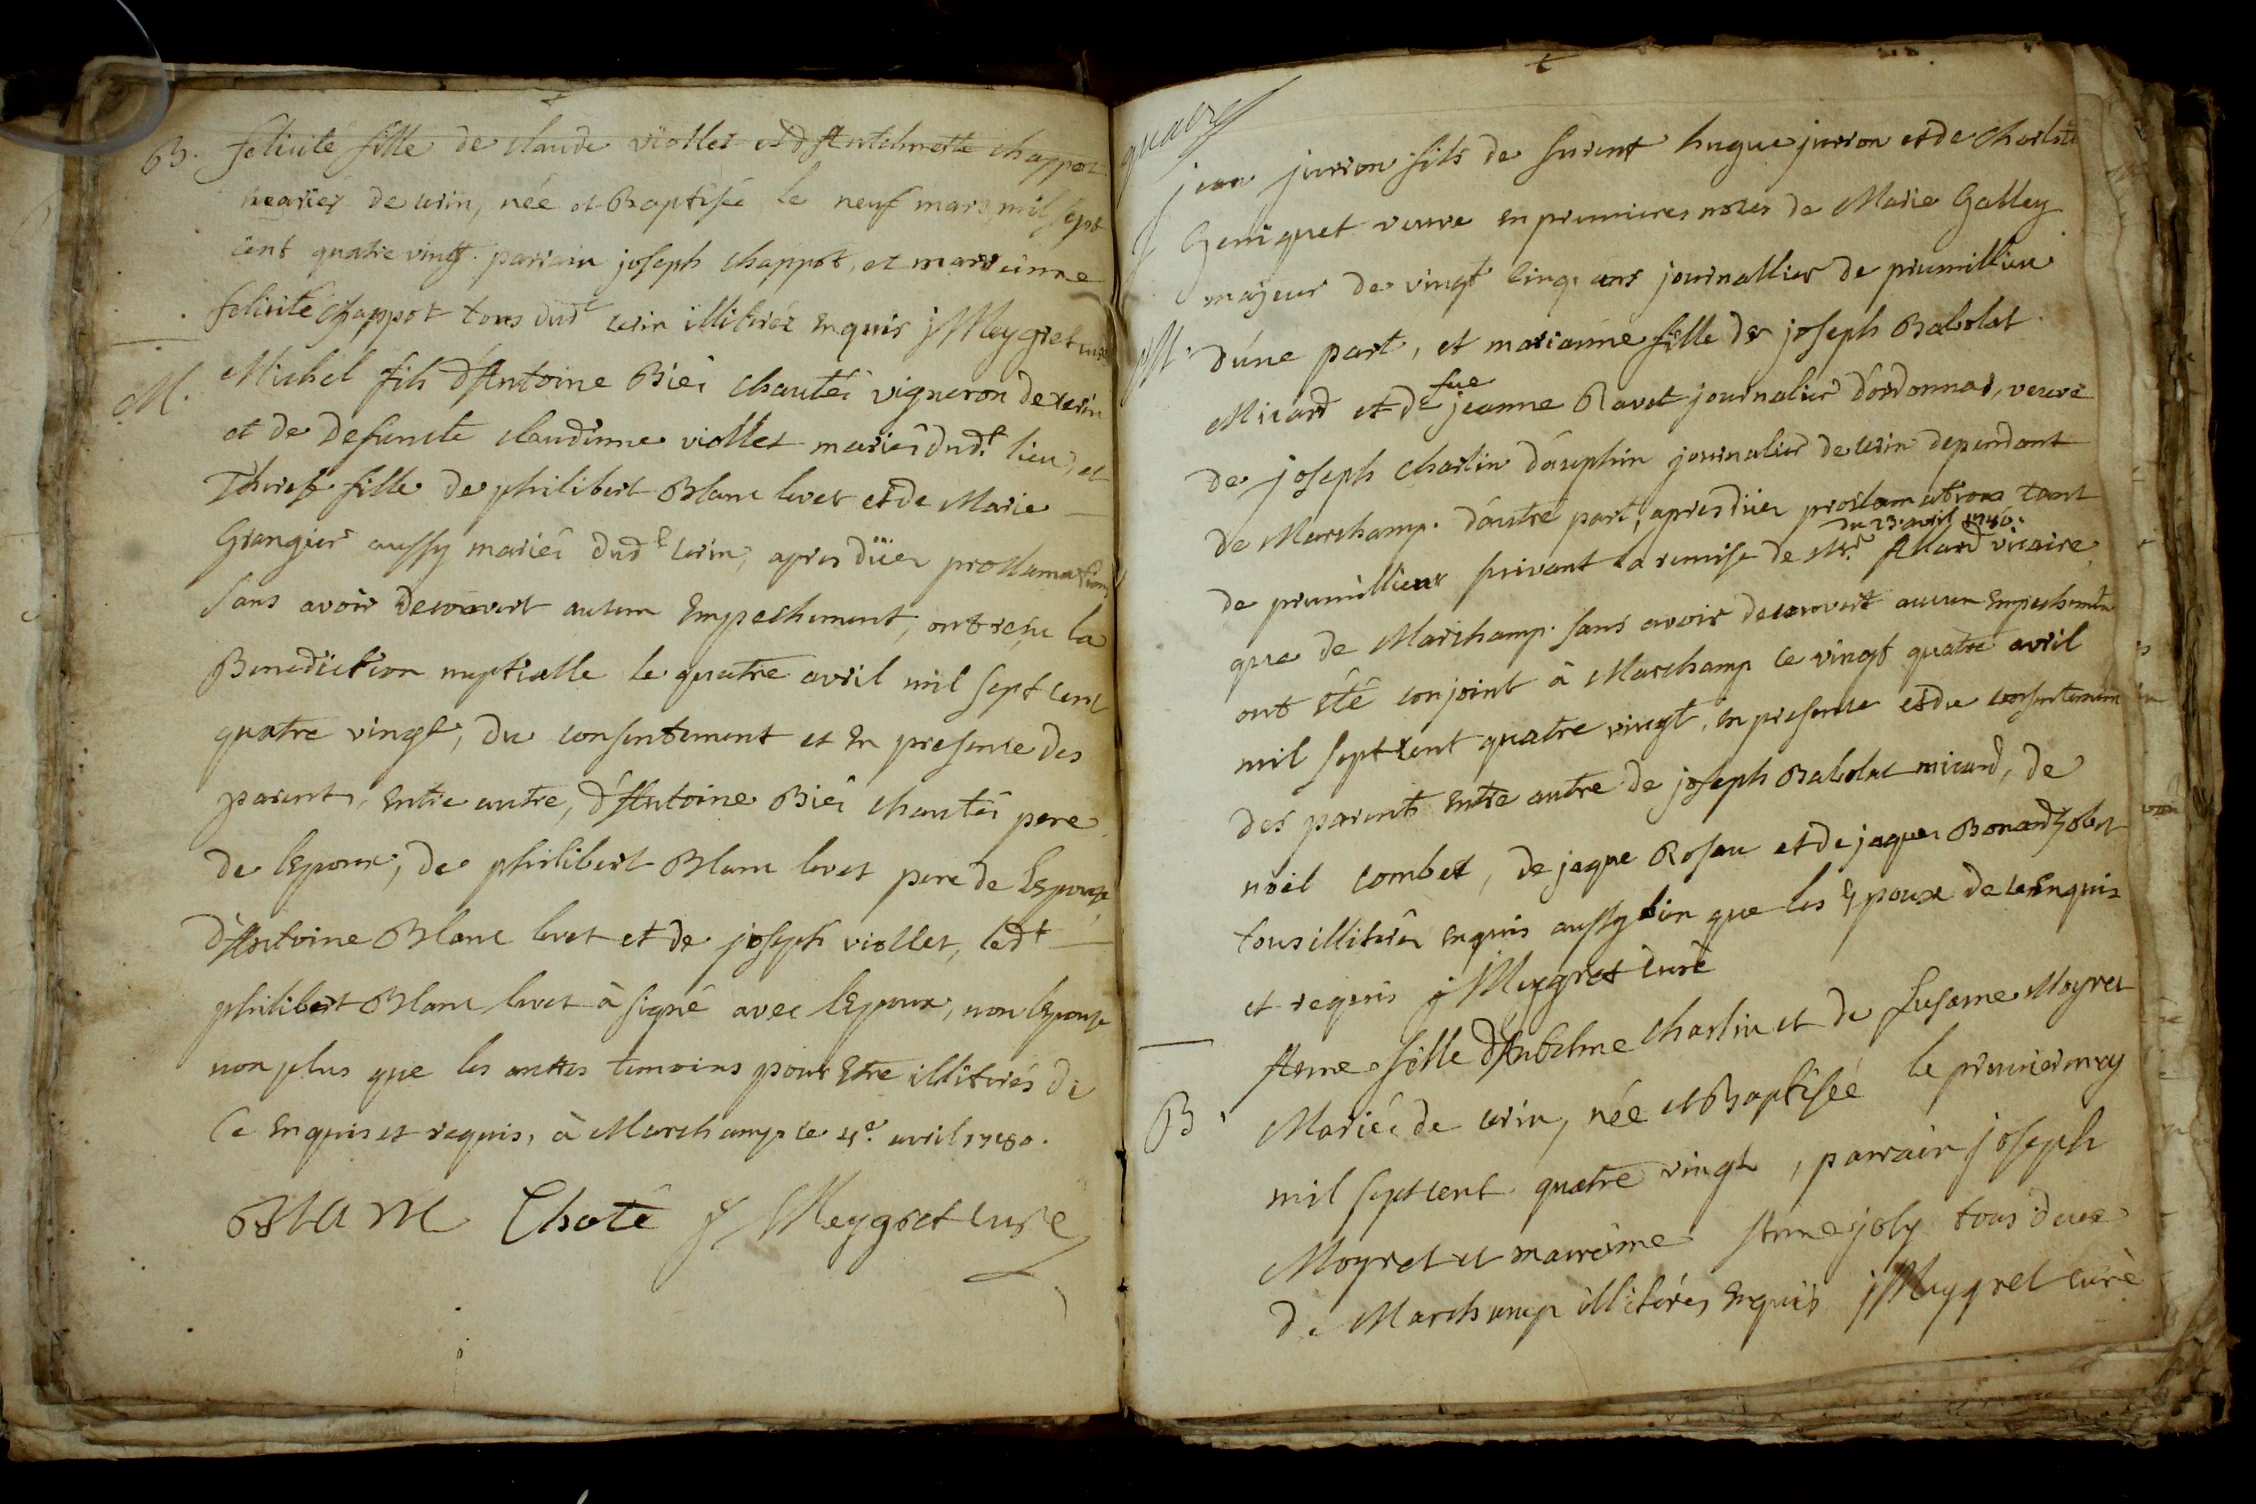 B. felicité fille de claude viollet et d'Antelmette chappot
mariés de cerin, née et Baptisée le neuf mars mil sept
cent quatre vingt. parrain joseph chappot, et marreinne
felicité chappot tous dudt cerin illiterés enquis j Meygret curé
M. Michel fils d'Antoine Biéi chautéi vigneron de cerin
et de defuncte claudinne viollet mariés dudt lieu, et
Therese fille de philibert Blanc levet et de Marie
Grangier aussy mariés dudt cerin, apres düer proclamations
sans avoir decouvert aucun Empechement, ont reçu la
Benediction nuptialle le quatre avril mil sept cent
quatre vingt, du consentement et en presence des
parents, entre autre, d'Antoine Biéi chautéi pere
de lEpoux, de philibert Blanc levet pere de lEpouse,
d'Antoine Blanc levet et de joseph viollet, ledt
philibert Blanc levet à signé avec lEpoux, non lEpouse
non plus que les autres temoins pour Etre illiterés de
ce enquis et requis, à Marchamp ce 4e. avril 1780.
BLANC Choté j Meygret curé
quatre
jean jurron fils de furent hugue jurron et de Charlote
Geniquet veuve en premieres noces de Marie Galley
majeur de vingt cinq ans journallier de premillieu
M. d'úne part, et marianne fille de joseph Babolat
Micard et de fue jeanne Ravet journalier d'ordonnas, veuve
de joseph charlin dauphin journalier de cerin dependant
de Marchamp. d'autre part, apres düer proclamations tant
du 23. avril 1780.
de premillieux suivant la remise de Mr. Allard vicaire
que de Marchamp. sans avoir decouvert aucun Empechement
ont été conjoint à Marchamp le vingt quatre avril
mil sept cent quatre vingt, en presence et du consentement
des parents entre autre de joseph Babolat micard, de
noël combet, de jaque Roseau et de jaques Bonard
tous illiterés enquis aussy bien que les Epoux de ce enquis
et requis j Meygret curé
Anne fille d'Antelme charlin et de Susanne Moyret
B. Mariés de cerin, née et Baptisée le premier may
mil sept cent quatre vingt, parrain joseph
Moyret et marreine Anne joly tous deux
de Marchamp illiterés enquis j Meygret curé